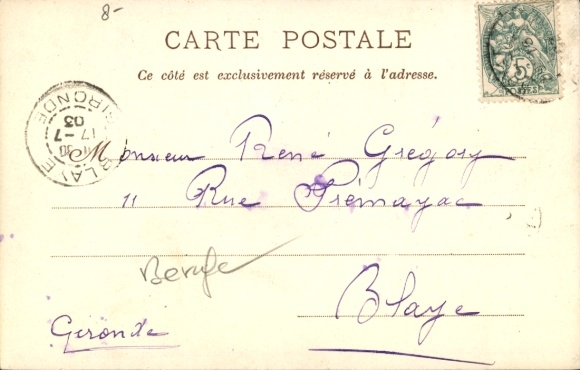 8-
CARTE POSTALE
Ce côté est exclusivement réservé à l'adresse.
5c
POSTES
BLAYE
GIRONDE
17 -7
03
Monsieur René Grégory
11 Rue Prémayac
Blaye
Gironde